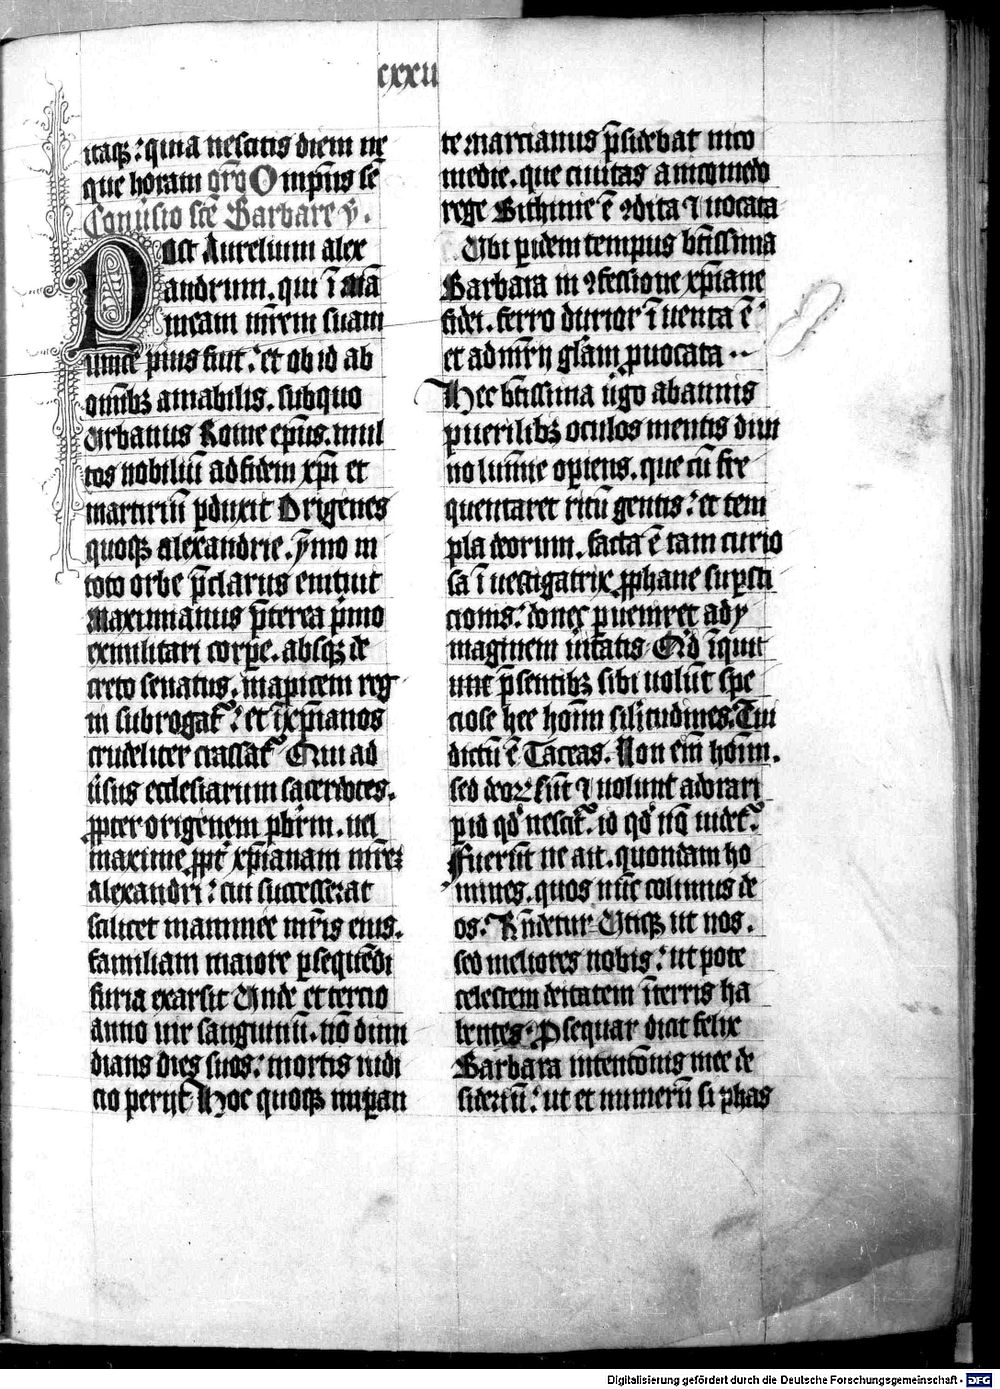 cxxii
itaqȝ: quia nescitis diem ne
que horam or̄o Omp̄ns sē
Conūsio scē Barbare v̄.
Post Aurelium alex
andrum. qui ī mā
meam mr̄em suam
unice pius fuit: et ob id ab
om̄ibȝ amabilis. sub quo
Urbanus Rome ep̄us. mul
tos nobiliū ad fidem xp̄i et
martiriū ꝑduxit Origenes
quoqȝ alexandrie. ymo in
toto orbe p̄clarus enituit
Maximianus p̄terea p̄mo
ex militari corꝑe. absqȝ de
creto senatus. in apicem reg
ni subrogat᷑: et ī xp̄ianos
crudeliter crassat᷑ Qui ad
ūsus ecclesiarum sacerdotes.
ꝓpter origenem pb̄rm. uel
maxime ꝓpt̄ xp̄ianam mr̄eȝ
alexandri: cui successerat
scilicet mammee mr̄is eius.
familiam maiore ꝑsequēdi
furia exarsit Unde et tercio
anno uir sanguinū. nō dimi
dians dies suos: mortis iudi
cio perijt Hoc quoqȝ imꝑan
te marcianus p̄sidebat nico
medie. que ciuitas a nicomedo
rege Bithinie ē ꝯdita ⁊ uocata
Ubi ꝑidem tempus bt̄issima
Barbara in ꝯfessione xp̄iane
fidei. ferro durior īuenta ē
et ad mr̄ij gl̄am ꝓuocata
Hec bt̄issima ūgo ab annis
puerilibȝ oculos mentis diui
no lumīe aꝑiens. que cū fre
quentaret ritū gentis: et tem
pla deorum. facta ē tam curio
sa īuestigatrix ꝓphane suꝑsti
cionis: donec ꝑueniret ad y
maginem ūitatis Qid īquit
une p̄sentibȝ sibi uolūt spe
ciose hee homī sil̄itudines. Cui
dictū ē Taceas. Non em̄ homī.
sed deoꝝ sūt ⁊ uolunt adorari
pro qd̓ nescit᷑. id qd̓ nō uidet᷑
Fuerūt ne ait. quondam ho
mines. quos nūc colimus de
os: Rn̄detur Utiqȝ ut nos.
sed meliores nobis: ut pote
celestem deitatem ī terris ha
bentes Psequar dicit felix
Barbara intentōnis mee de
sideriū: ut et numerū si phas
Digitalisierung gefördert durch die Deutsche Forschungsgemeinschaft - DFG